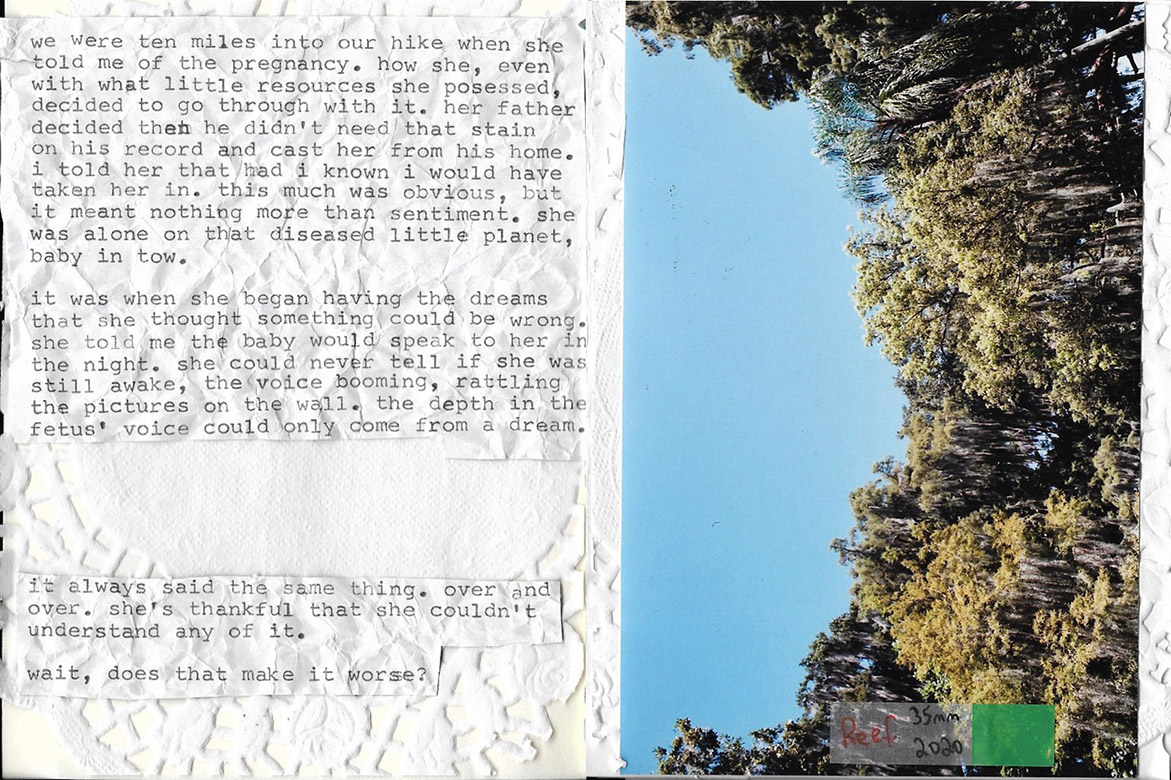 we were ten miles into our hike when she
told me of the pregnancy. how she, even
with what little resources she posessed,
decided to go through with it. her father
decided then he didn't need that stain
on his record and cast her from his home.
i told her that had i known i would have
taken her in. this much was obvious, but
it meant nothing more than sentiment. she
was alone on that diseased little planet,
baby in tow.
it was when she began having the dreams
that she thought something could be wrong.
she told me the baby would speak to her in
the night. she could never tell if she was
still awake, the voice booming, rattling
the pictures on the wall. the depth in the
fetus' voice could only come from a dream.
it always said the same thing. over and
over. she's thankful that she couldn't
understand any of it.
wait, does that make it worse?
Reef 35mm
2020